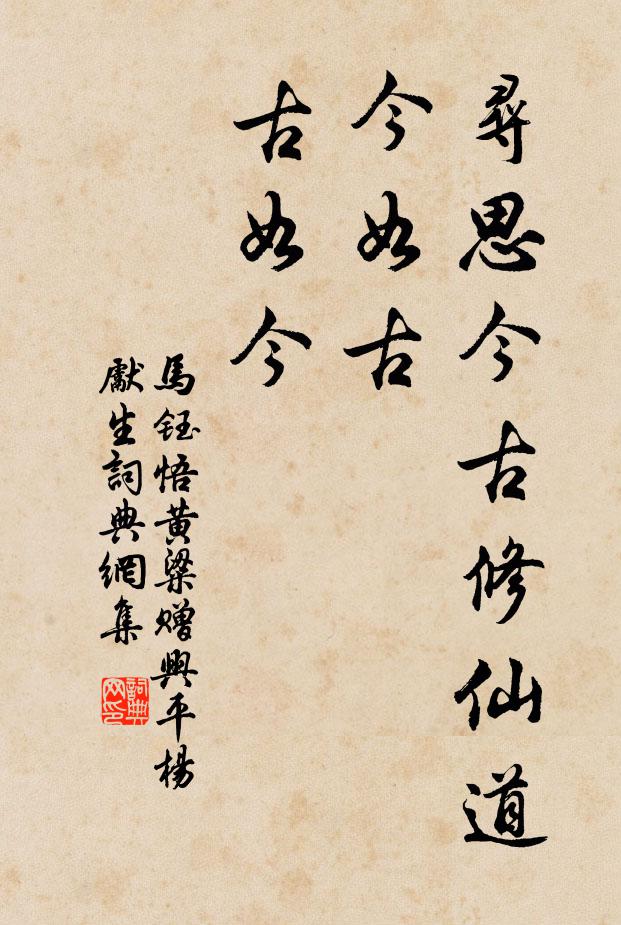 尋思今古修仙道
今如古
古如今
馬鈺悟黄粱贈興平楊
獻生詞典網集
詞典
网印